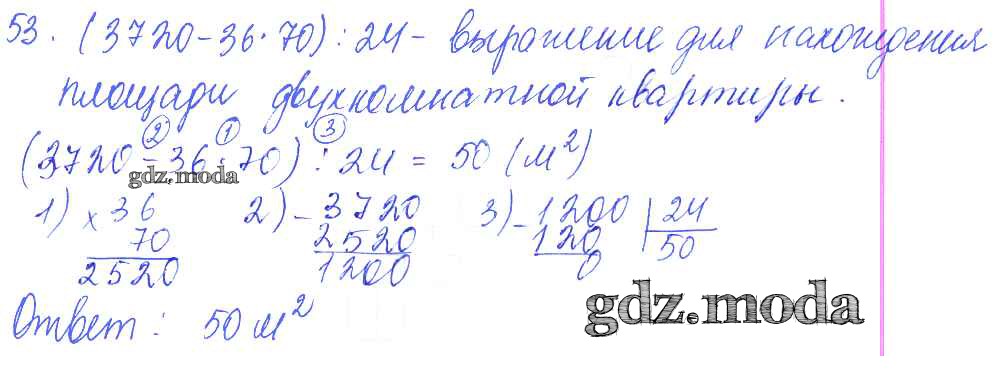 53. (3720 - 36 · 70) : 24 - выражение для нахождения
площади двухкомнатной квартиры.
② ① ③
(3720 - 36 · 70) : 24 = 50 (м²)
gdz.moda
1) × 36 2) - 3720 3) - 1200 | 24
70 2520 120 50
2520 1200 0
Ответ: 50 м²
gdz.moda